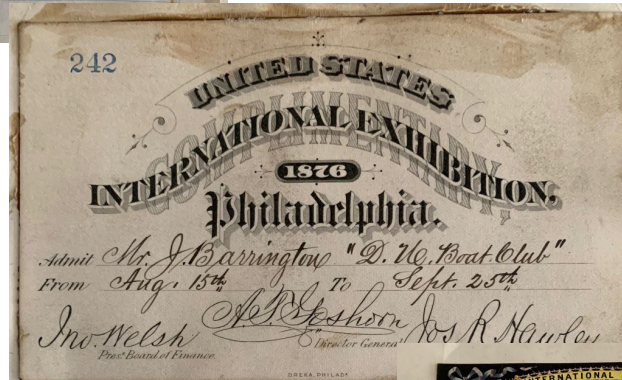 242
UNITED STATES
COMPLIMENTARY.
INTERNATIONAL EXHIBITION.
1876
Philadelphia.
Admit Mr. J. Barrington "D. U. Boat Club"
From Aug. 15th To Sept. 25th
Jno. Welsh A. T. Goshorn Jos R Hawley
Prest. Board of Finance. Director General
DREKA, PHILADA.
INTERNATIONAL